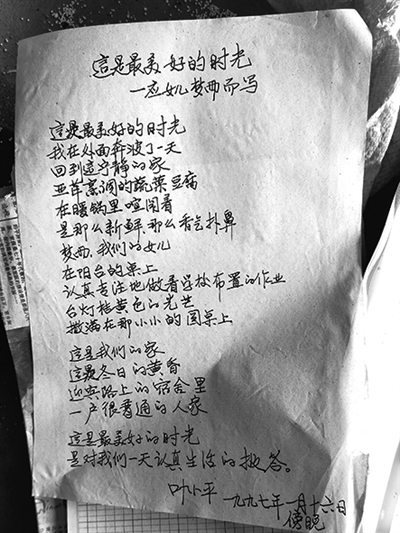 這是最美好的时光
一应女儿梦西而写
這是最美好的时光
我在外面奔波了一天
回到這宁静的家
亚萍烹调的蔬菜豆腐
在暖锅里喧闹着
是那么新鲜、那么香气扑鼻
梦西、我们的女儿
在阳台的桌上
认真专注地做着学校布置的作业
台灯桔黄色的光芒
撒满在那小小的圆桌上
這是我们的家
這是冬日的黄昏
迎宾路上的宿舍里
一户很普通的人家
這是最美好的时光
是对我们一天认真生活的报答。
叶小平 一九九七年一月十六日
傍晚